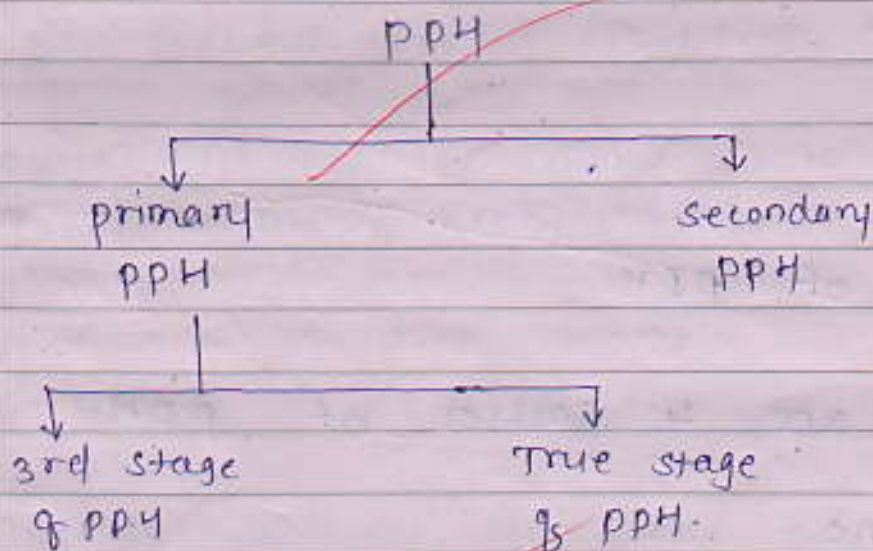 PPH
primary
PPH
secondary
PPH
3rd stage
of PPH
True stage
of PPH.